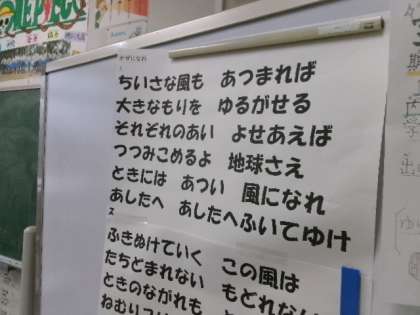 かぜになれ
ちいさな風も　あつまれば
大きなもりを　ゆるがせる
それぞれのあい　よせあえば
つつみこめるよ　地球さえ
ときには　あつい　風になれ
あしたへ　あしたへふいてゆけ
2
ふきぬけていく　この風は
たちどまれない　もどれない
ときのながれも